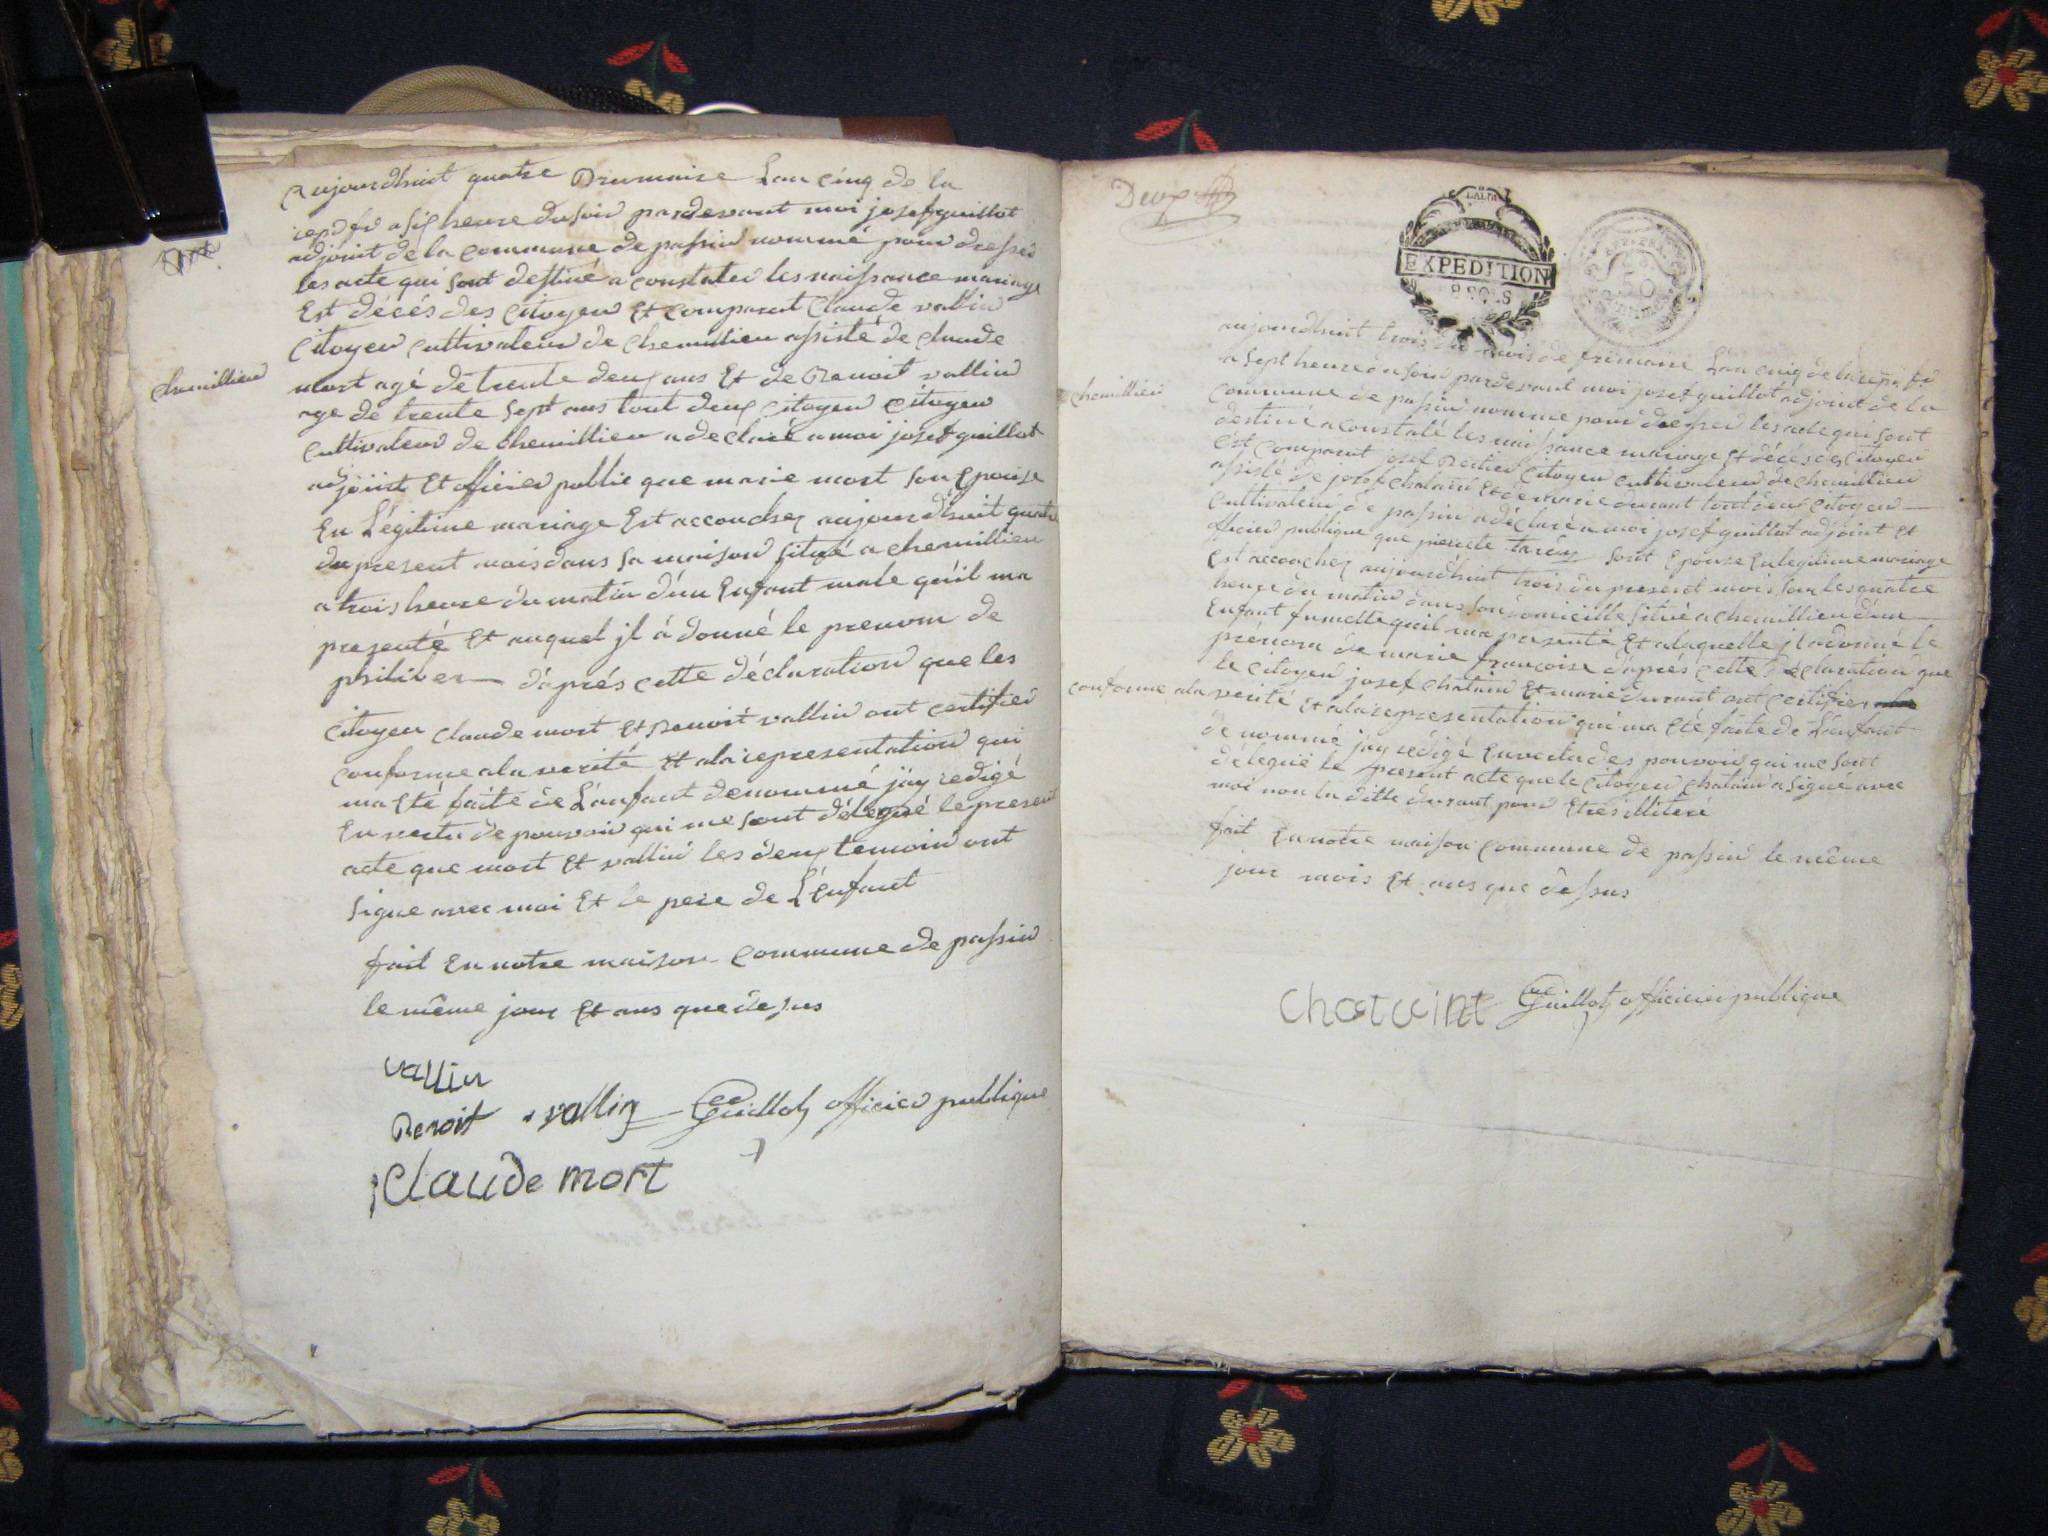 aujourdhuit quatre Brumaire L'an cinq de la
rep fr a six heure du soir pardevant moi josef guillot
adjoint de la commune de passin nommé pour dresser
les acte qui sont destiné a constater les naissance mariage
Est décés des Citoyen Et comparut Claude vallin
Citoyen cultivateur de chemillieu assisté de claude
mort agé de trente deux ans Et de Benoit vallin
age de trente sept ans tout deux citoyen citoyen
chemillieu
cultivateur de chemillieu a declaré a moi josef guillot
adjoint Et officier public que marie mort son Epouse
En Légitime mariage Est accouchez aujourdhuit quatre
du present mois dans sa maison situé a chemillieu
a trois heure du matin d'un Enfant male qu'il ma
presenté Et auquel jl à donné le prenom de
philiber d'aprés cette déclaration que les
citoyen claude mort Et Benoit vallin ont certifier
conforme a la verité Et a la representation qui
ma Eté faite de L'anfant denommé j'ay redigé
En vertu de pouvoir qui me sont délegué le present
acte que mort Et vallin les deux temoin ont
signe avec moi Et le pere de L'enfant
fait En notre maison commune de passin
le même jour Et ans que desus
vallin
Benoit vallin Guillot officier publique
Claude mort
Deux
LA LOI
EXPEDITION
8 SOLS
50
aujourdhuit trois du mois de frimaire L'an cinq de la rep fr
a sept heure du soir pardevant moi josef guillot adjoint de la
chemillieu
commune de passin nomme pour dresser les acte qui sont
destiné a constaté les naissance mariage Et décés des Citoyen
Est comparut josef Citoyen cultivateur de chemillieu
assisté de josef chatain Et de marie durant tout deux citoyen
cultivateur de passin a déclaré a moi josef guillot adjoint Et
officier publique que pierrette sont Epouse En legitime mariage
Est accouchez aujourdhuit trois du present mois sur les quatre
heure du matin dans son domicille situé a chemillieu d'un
Enfant fumelle qu'il ma presenté Et a laquelle jl a donné le
prénom de marie françoise d'apres cette déclaration que
le citoyen josef chatain Et marie durant ont certifier
conforme a la verité Et a la representation qui ma Eté faite de L'enfant
denommé j'ay rédigé En vertu des pouvoir qui me sont
délegué le present acte que le citoyen chatain a signé avec
moi non la ditte durant pour Etre illiteré
fait En notre maison commune de passin le même
jour mois Et ans que dessus
Chataint Guillot officier publique